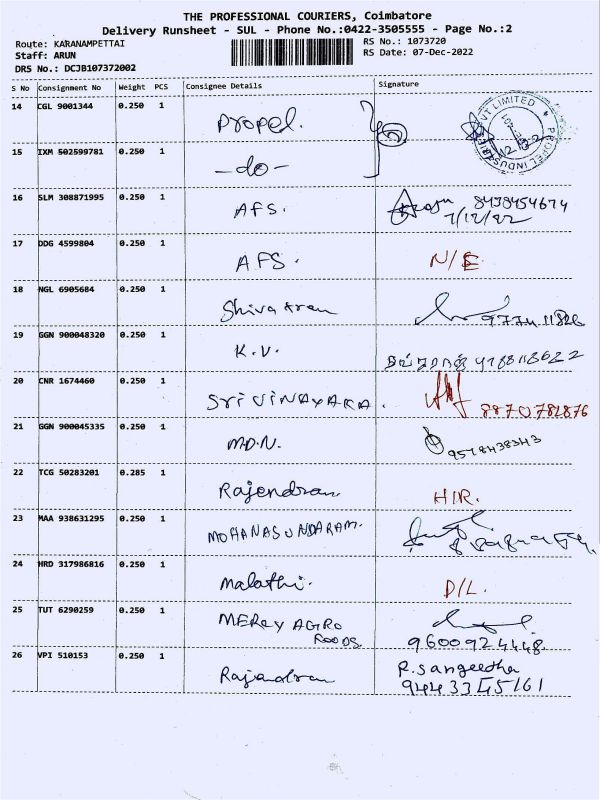 THE PROFESSIONAL COURIERS, Coimbatore
Delivery Runsheet - SUL - Phone No.:0422-3505555 - Page No.:2
Route: KARANAMPETTAI
Staff: ARUN
DRS No.: DCJB107372002
RS No.: 1073720
RS Date: 07-Dec-2022
S No Consignment No Weight PCS Consignee Details Signature
14 CGL 9001344 0.250 1 Propel.
VT LIMITED PROPEL INDUS
15 IXM 502599781 0.250 1 -do-
16 SLM 308871995 0.250 1 AFS. 8438454674
7/12/22
17 DDG 4599804 0.250 1 AFS. N/E
18 NGL 6905684 0.250 1 Shivaaram
19 GGN 900048320 0.250 1 K.V.
20 CNR 1674460 0.250 1 SRI VINAYAKA. 8870782876
21 GGN 900045335 0.250 1 M.D.N. 9578438343
22 TCG 50283201 0.285 1 Rajendran H/R.
23 MAA 938631295 0.250 1 MOHANASUNDARAM.
24 HRD 317986816 0.250 1 Malathi. D/L.
25 TUT 6290259 0.250 1 MERCY AGRO
FOODS 9600924448
26 VPI 510153 0.250 1 Rajendran R.Sangeetha
9443345161